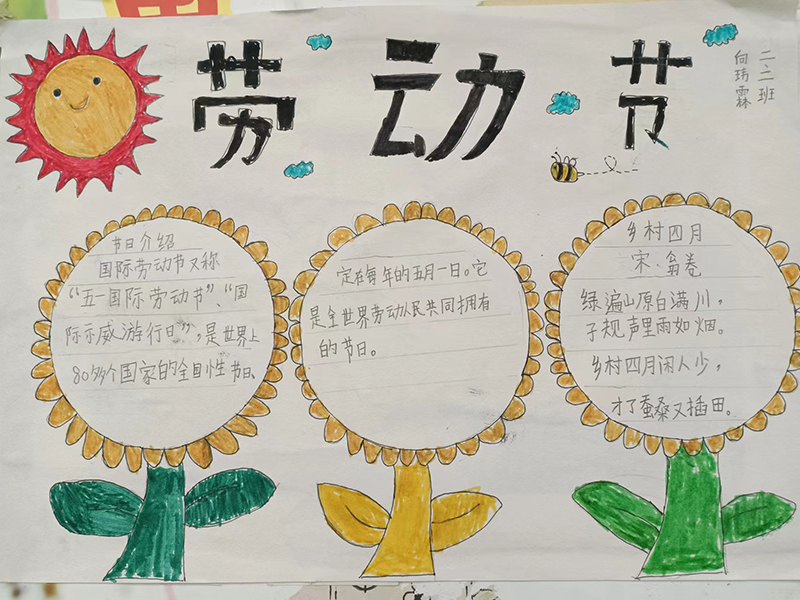 劳动节
二.二班
向玮霖
节日介绍
国际劳动节又称
“五一国际劳动节”、“国
际示威游行日”,是世界上
80多个国家的全国性节日。
定在每年的五月一日。它
是全世界劳动人民共同拥有
的节日。
乡村四月
宋·翁卷
绿遍山原白满川,
子规声里雨如烟。
乡村四月闲人少,
才了蚕桑又插田。